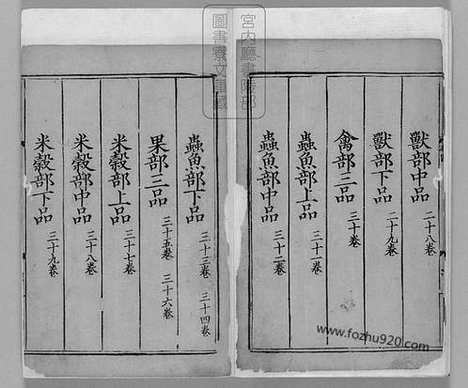 獸部中品 二十八卷
獸部下品 二十九卷
禽部三品 三十卷
蟲魚部上品 三十一卷
蟲魚部中品 三十二卷
蟲魚部下品 三十三卷 三十四卷
果部三品 三十五卷 三十六卷
米穀部上品 三十七卷
米穀部中品 三十八卷
米穀部下品 三十九卷
宮內廳書陵部
圖書寮文庫藏
www.fozhu920.com